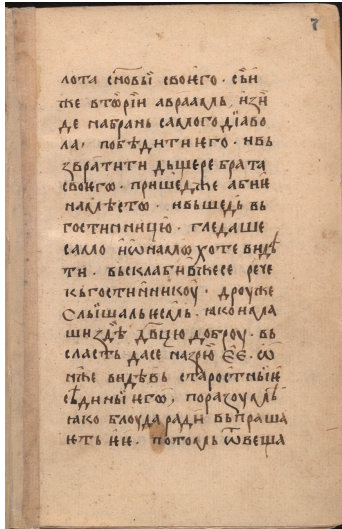 7
лота сн҃овы своѥго · сьи
же вторіи авраамь изи
де на брань самого діаво
ла · побѣдити ѥго · и вь
звратити дьщере брата
своѥго · пришедже абиѥ
на мѣсто · и вьшедь вь
гостинницю · гледаше
само и онамо хоте видѣ
ти · вьсклабивжесе рече
кь гостинникоу · дроуже
слышаль ѥсмь · ꙗко имма
ши здѣ дв҃цю доброу · вь
сласть да се назрю ѥѥ · ѡ
нже видѣвь старостныѥ
сѣдины ѥго · поразоумѣ
ꙗко блоуда ради вьпраша
ѥть ѥѥ · потомь ѿвеща